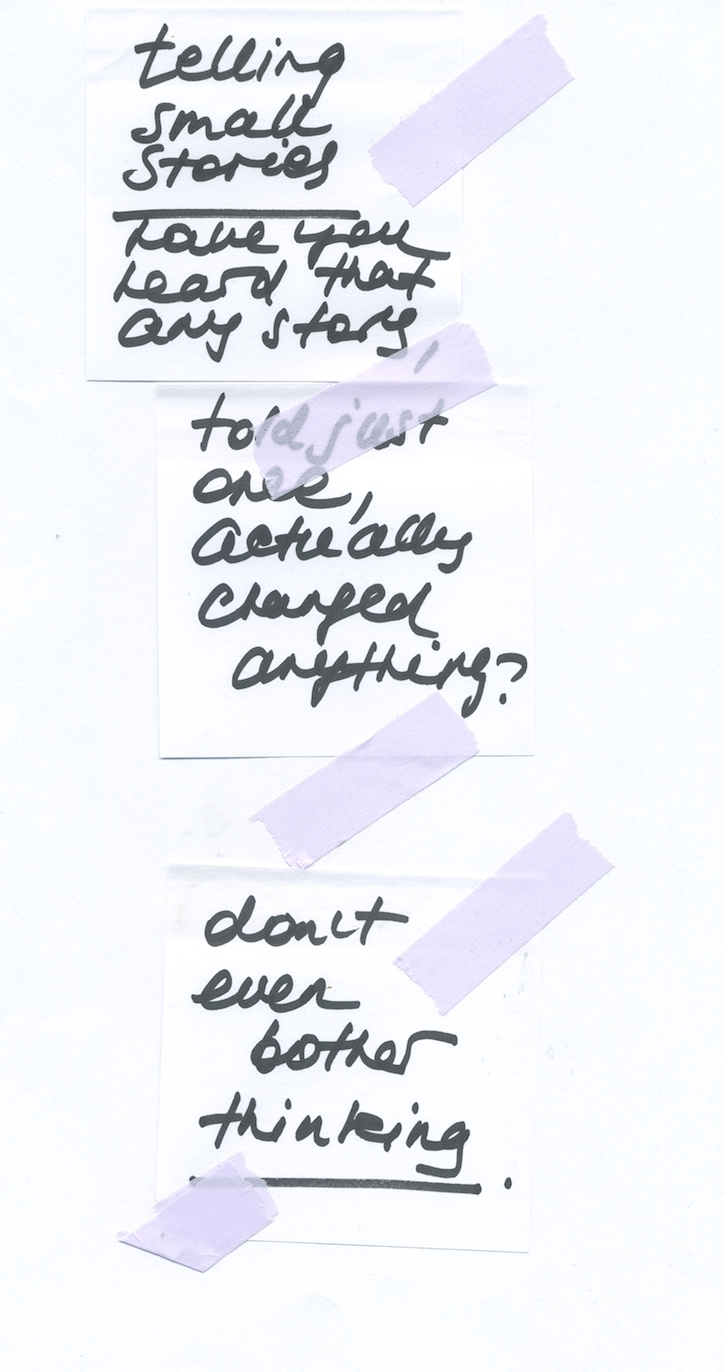 telling
small
stories
have you
heard that
any story,
told just
once,
actually
changed
anything?
don't
even
bother
thinking.